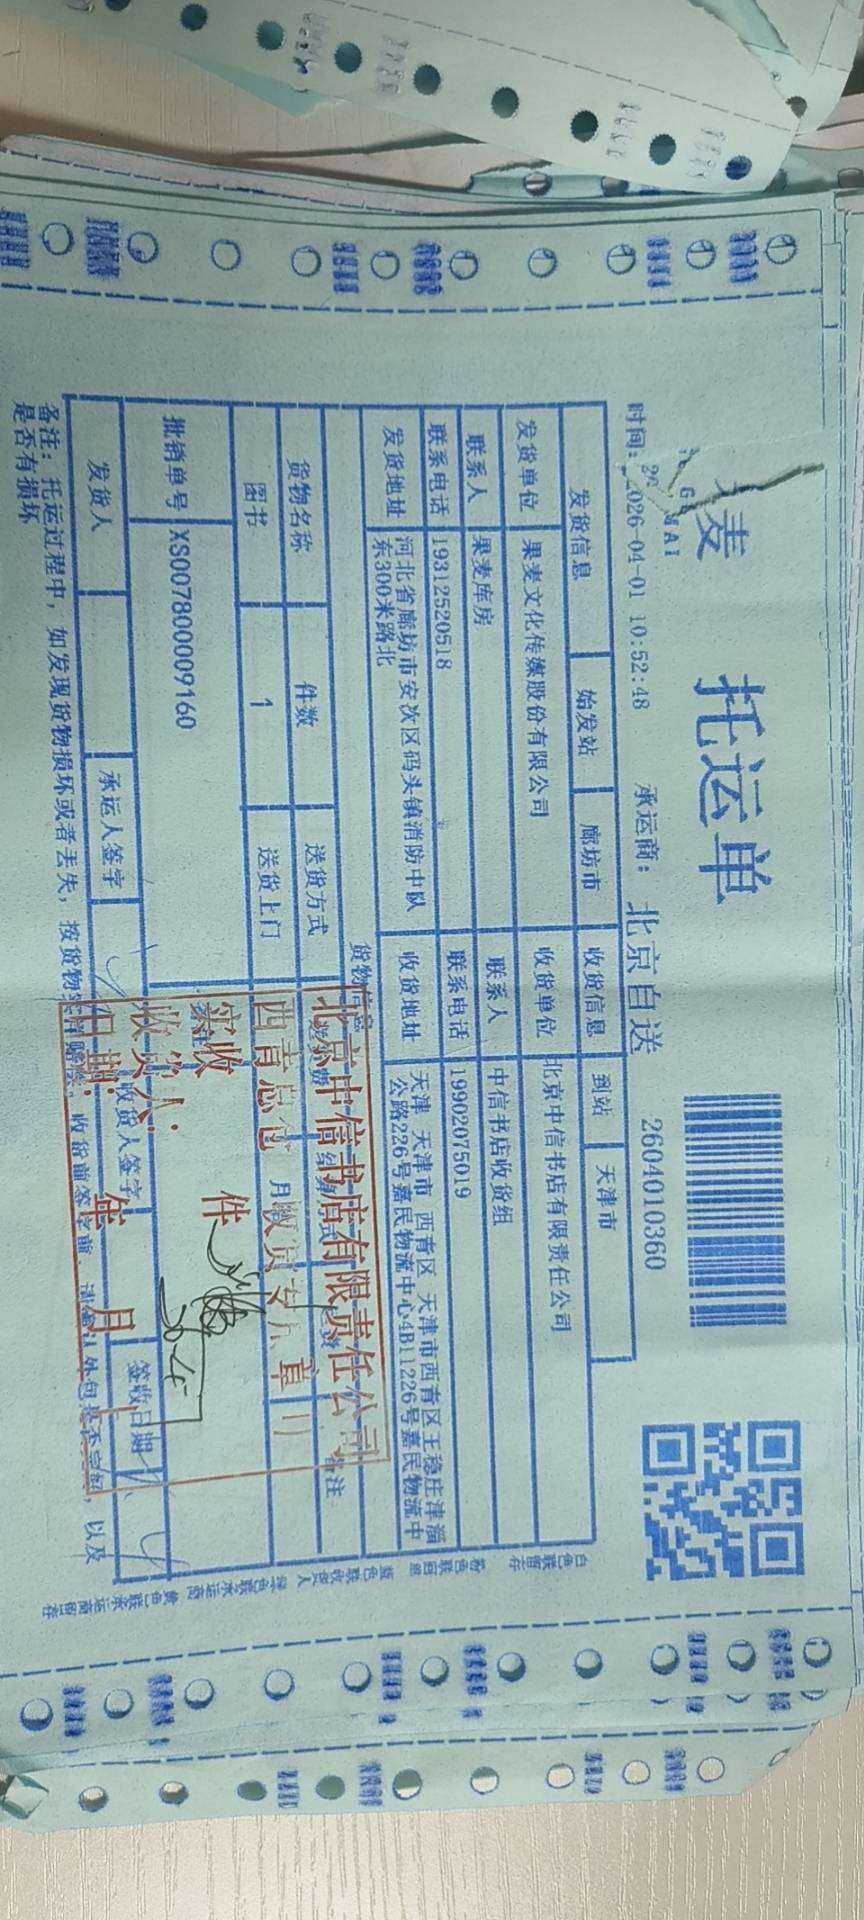 麦
MAI
托运单
时间: 2026-04-01 10:52:48
承运商: 北京自送
2604010360
发货信息 始发站 廊坊市 收货信息 到站 天津市
发货单位 果麦文化传媒股份有限公司 收货单位 北京中信书店有限责任公司
联系人 果麦库房 联系人 中信书店收货组
联系电话 19312520518 联系电话 19902075019
发货地址 河北省廊坊市安次区码头镇消防中队东300米路北 收货地址 天津 天津市 西青区 天津市西青区王稳庄津淄公路226号嘉民物流中心4B11226号嘉民物流中
货物信息
货物名称 件数 送货方式 备注
图书 1 送货上门 月
批销单号 XS007800009160
发货人 承运人签字 收货人签字 签收日期
备注: 托运过程中, 如发现货物损坏或者丢失, 按货物
收货前签字前, 外包是否完好, 以及
是否有损坏
北京中信书店有限责任公司
西青总仓收货专用章
实收 件
收货人:
日期: 年 月 日
白色联留存
粉色联回单
蓝色联收货人
绿色联承运商
黄色联承运商留存